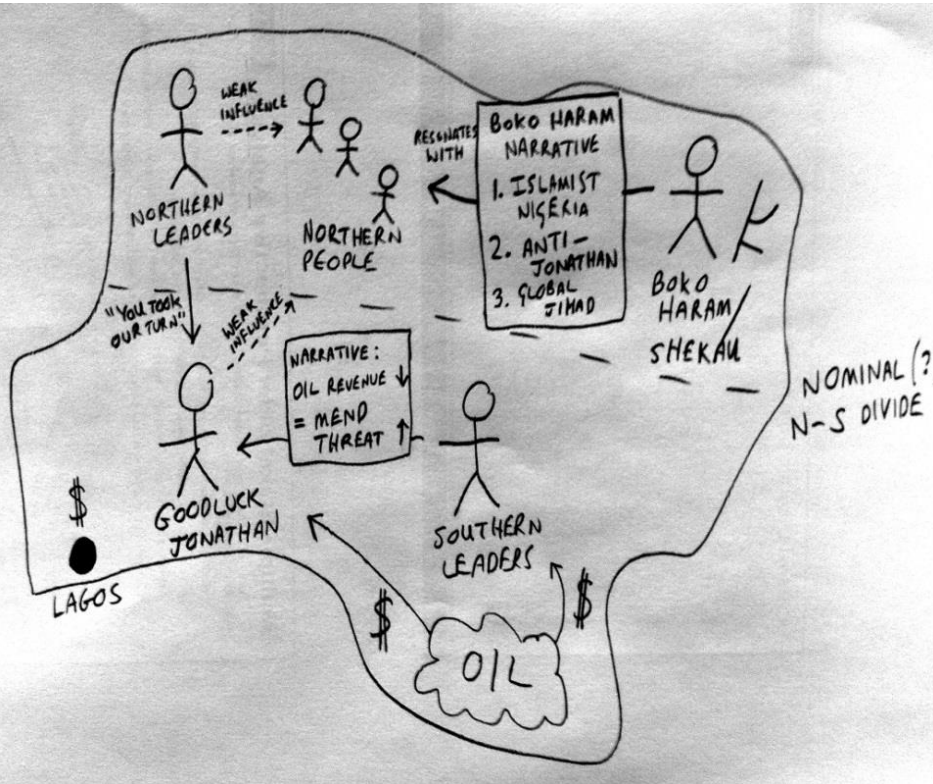 WEAK
INFLUENCE
NORTHERN
LEADERS
NORTHERN
PEOPLE
RESONATES
WITH
BOKO HARAM
NARRATIVE
1. ISLAMIST
NIGERIA
2. ANTI-
JONATHAN
3. GLOBAL
JIHAD
BOKO
HARAM/
SHEKAU
"YOU TOOK
OUR TURN"
WEAK
INFLUENCE
NARRATIVE:
OIL REVENUE ↓
= MEND
THREAT ↑
NOMINAL (?
N-S DIVIDE
GOODLUCK
JONATHAN
SOUTHERN
LEADERS
$
LAGOS
$
$
OIL